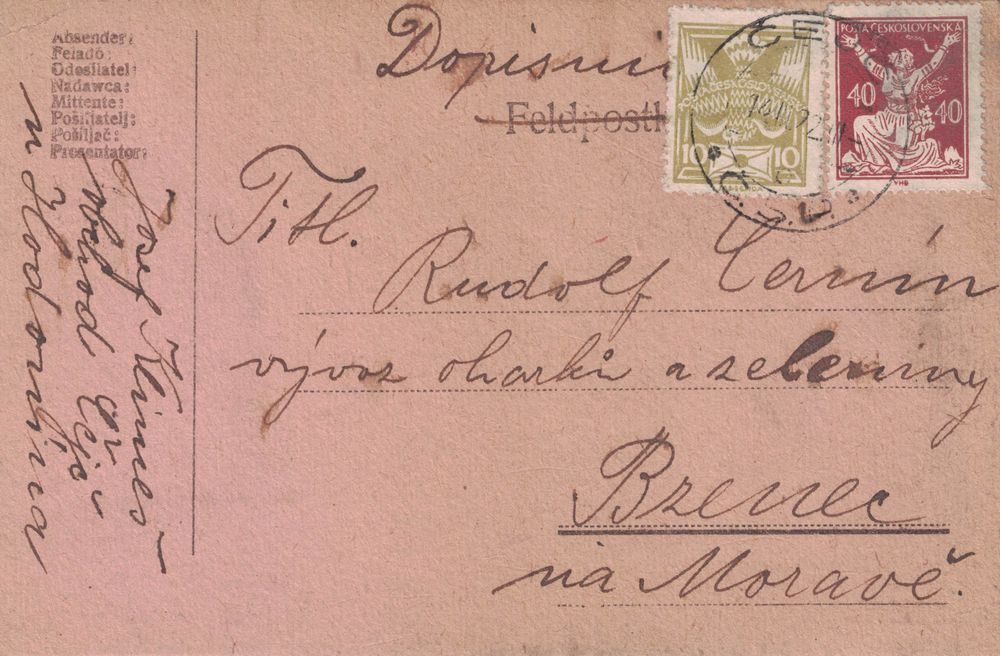 Absender:
Feladó:
Odosilatel:
Nadawca:
Mittente:
Pošiljatelj:
Pošiljač:
Presentator:
Josef Klimeš
obchod
u Hodonína
Dopisni
Feldpostk
POŠTA ČESKOSLOVENSKÁ
10 10
POŠTA ČESKOSLOVENSKÁ
40 40
VHB
Titl.
Rudolf Černín
vývoz okurků a zeleniny
Bzenec
na Moravě.